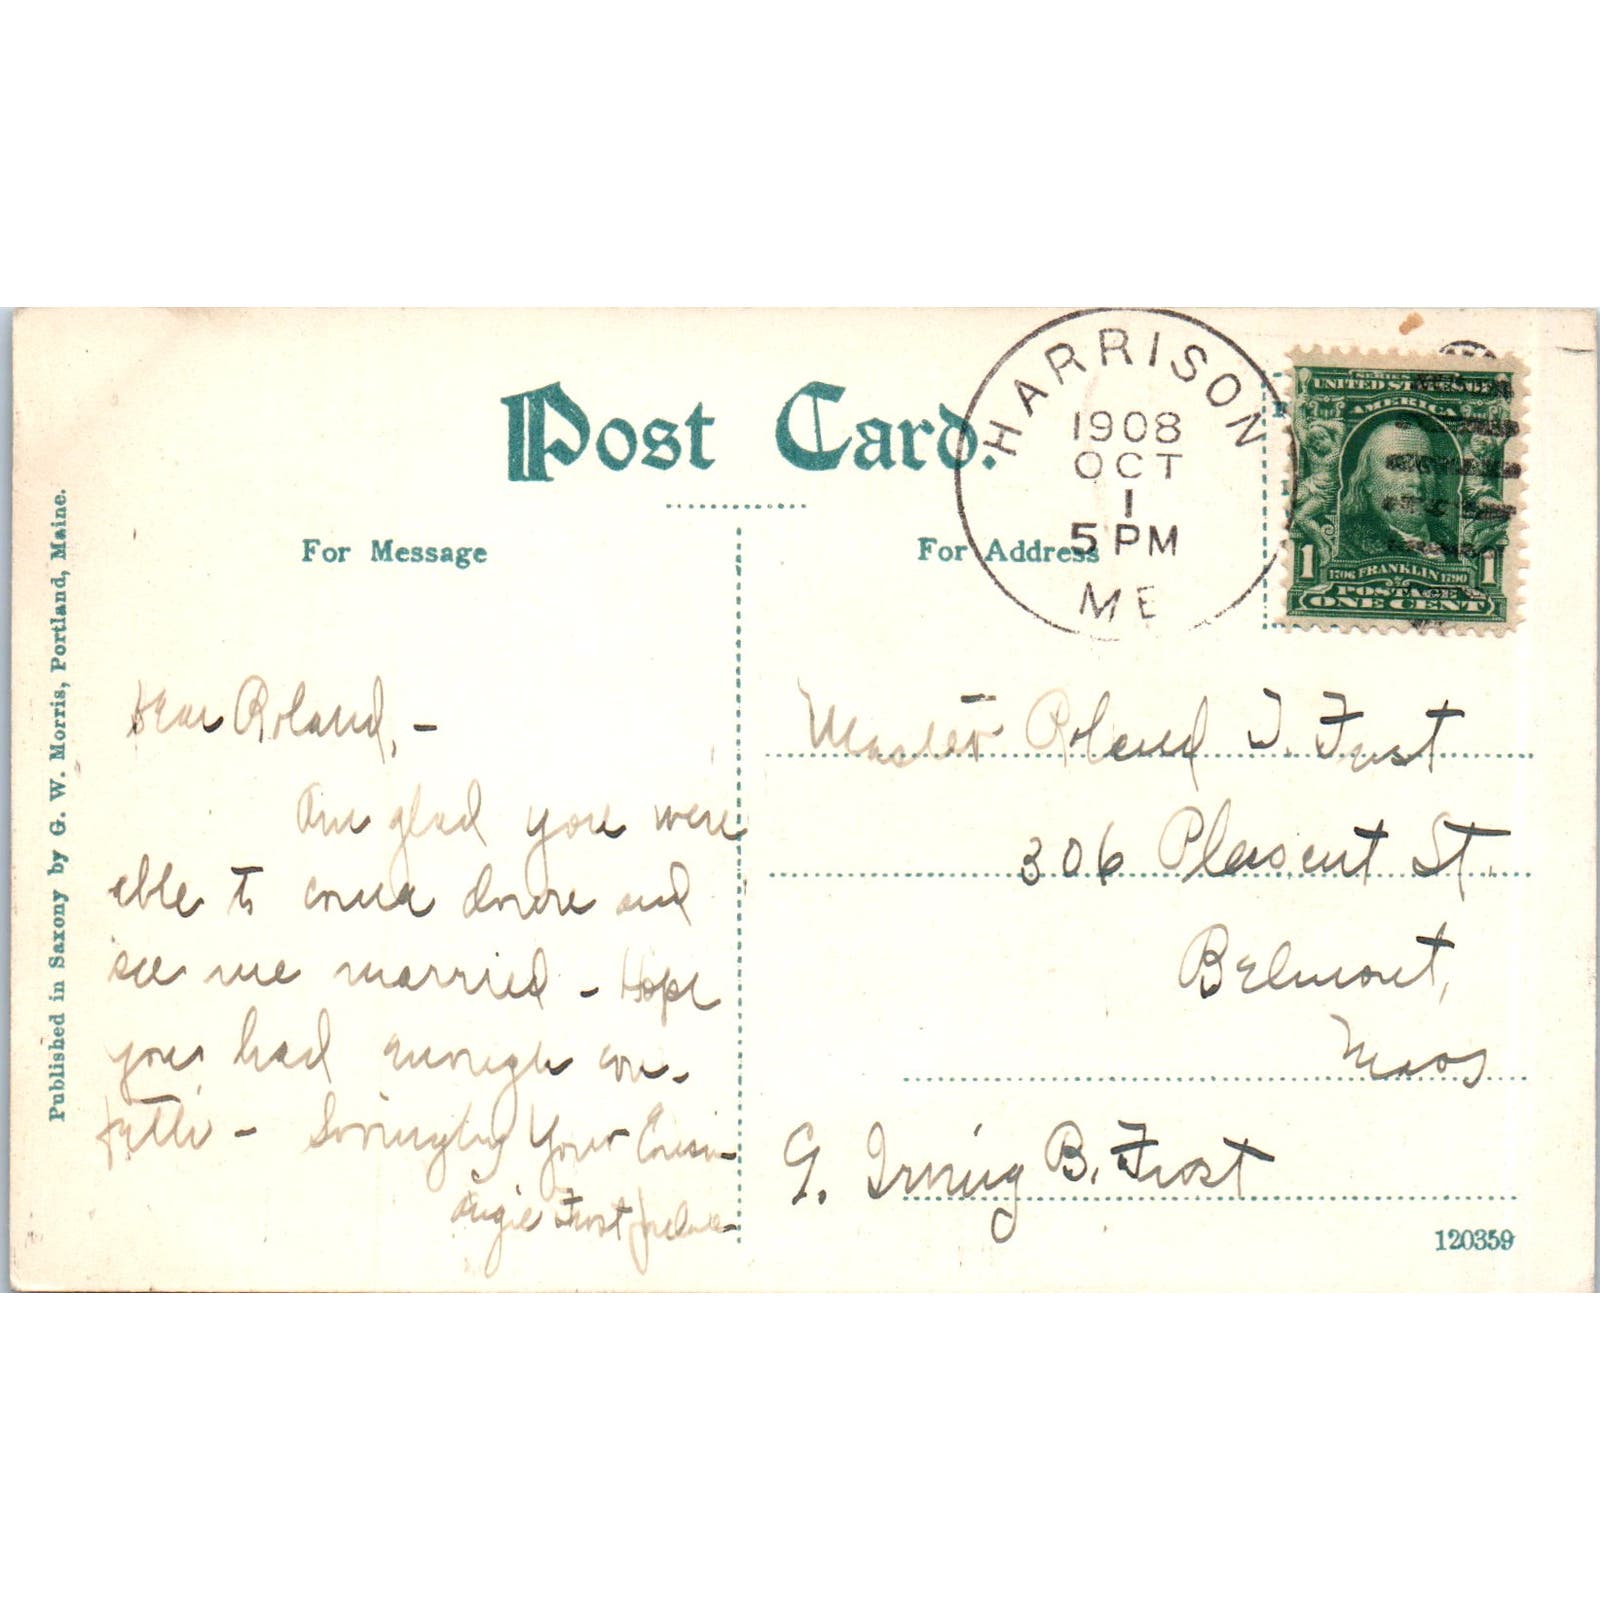 Post Card.
For Message
For Address
HARRISON
1908
OCT
1
5 PM
ME
SERIES 1902
UNITED STATES OF
AMERICA
1706 FRANKLIN 1790
1 POSTAGE 1
ONE CENT
Published in Saxony by G. W. Morris, Portland, Maine.
Dear Roland, -
Am glad you were
able to come down and
see me married - Hope
you had enough con-
fetti - Lovingly Your Cousin
Angie Frost
Master Roland T. Frost
306 Pleasent St.
Belmont,
Mass
G. Irving B. Frost
120359